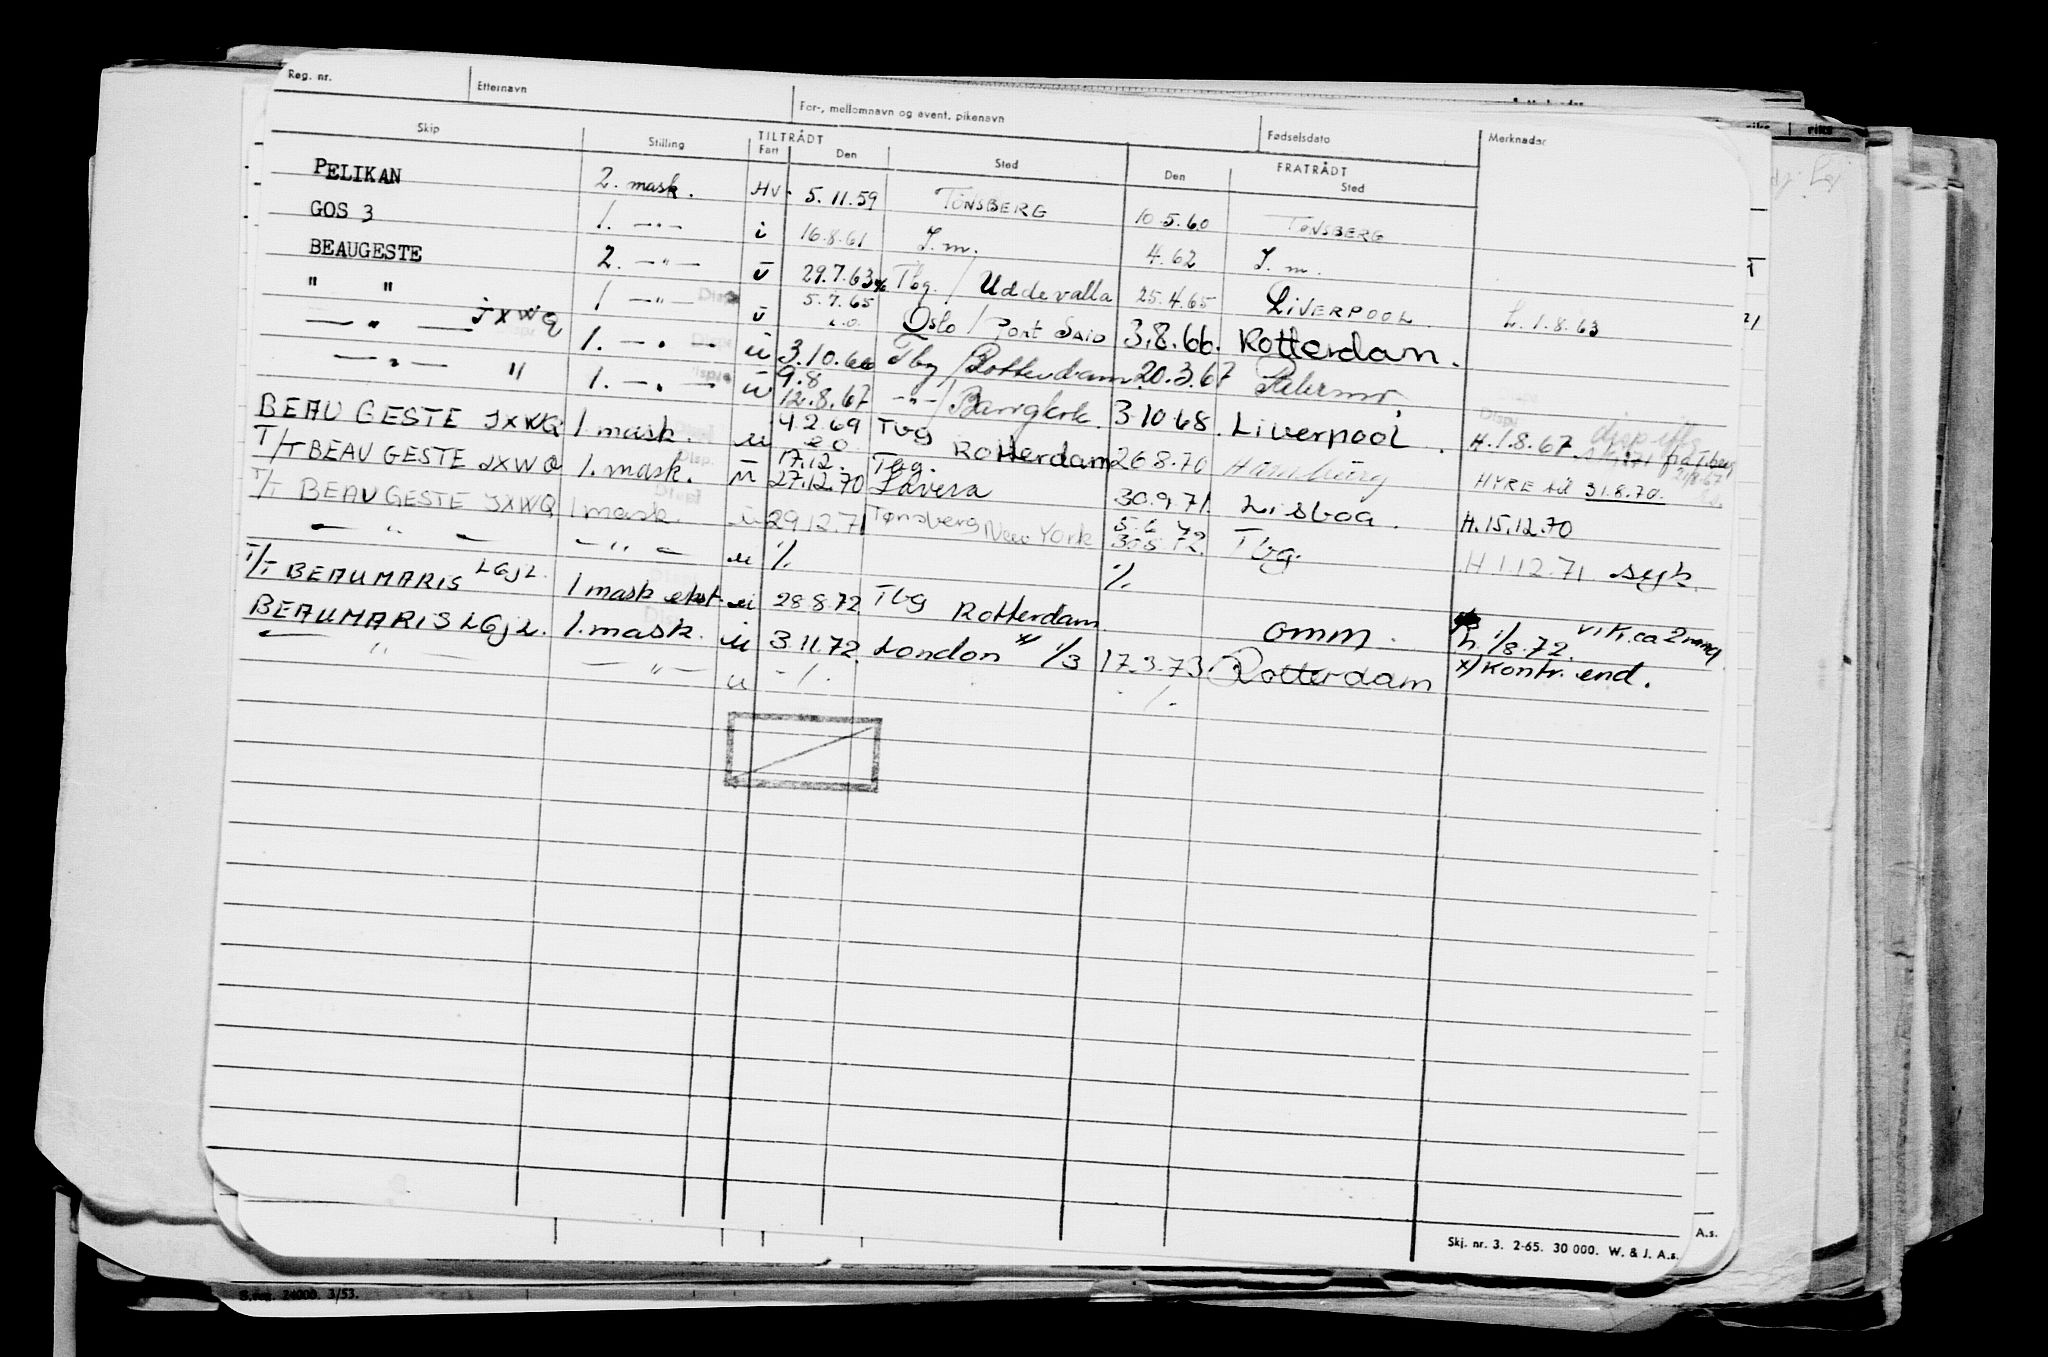 Reg. nr. Etternavn For-, mellomnavn og event. pikenavn Fødselsdato Merknader
Skip Stilling TILTRÅDT FRATRÅDT
Fart Den Sted Den Sted
PELIKAN 2. mask. HV. 5.11.59 TØNSBERG 10.5.60 TØNSBERG
GOS 3 1. -"- i 16.8.61 I.m. 4.62 I.m.
BEAUGESTE 2. -"- u 29.7.63 Tbg. / Uddevalla 25.4.65 LIVERPOOL L.1.8.63
" " 1 -"- u 5.7.65 Oslo / Port Said 3.8.66. Rotterdam.
-"- JXWQ 1. -"- u 3.10.66 Tbg / Rotterdam 20.3.67 Palermo.
-"- " 1. -"- u 9.8 12.8.67 -"- / Bangkok 3.10.68. Liverpool. H.1.8.67.
BEAU GESTE JXWQ 1 mask. u 4.2.69 Tbg Rotterdam 26.8.70 Hamburg HYRE til 31.8.70.
T/T BEAU GESTE JXWQ 1. mask. u 17.12. 27.12.70 Tbg. Lavera 30.9.71. Lisboa. H.15.12.70
T/T BEAU GESTE JXWQ 1 mask. u 29.12.71 Tønsberg New York 5.6.72 Tbg. H 1.12.71 syk.
- " - - " - u % %
T/T BEAUMARIS LGJL. 1 mask ekst. u 28.8.72 Tbg Rotterdam omm. h. 1/8.72. vik. ca 2 mnd.
BEAUMARIS LGJL. 1. mask. u 3.11.72. London 1/3 17.3.73. Rotterdam x/ Kontr. end.
- " - - " - u -/. -/.
Skj. nr. 3. 2-65. 30 000. W. & J. A.s.
A.s.
24000. 3/53.